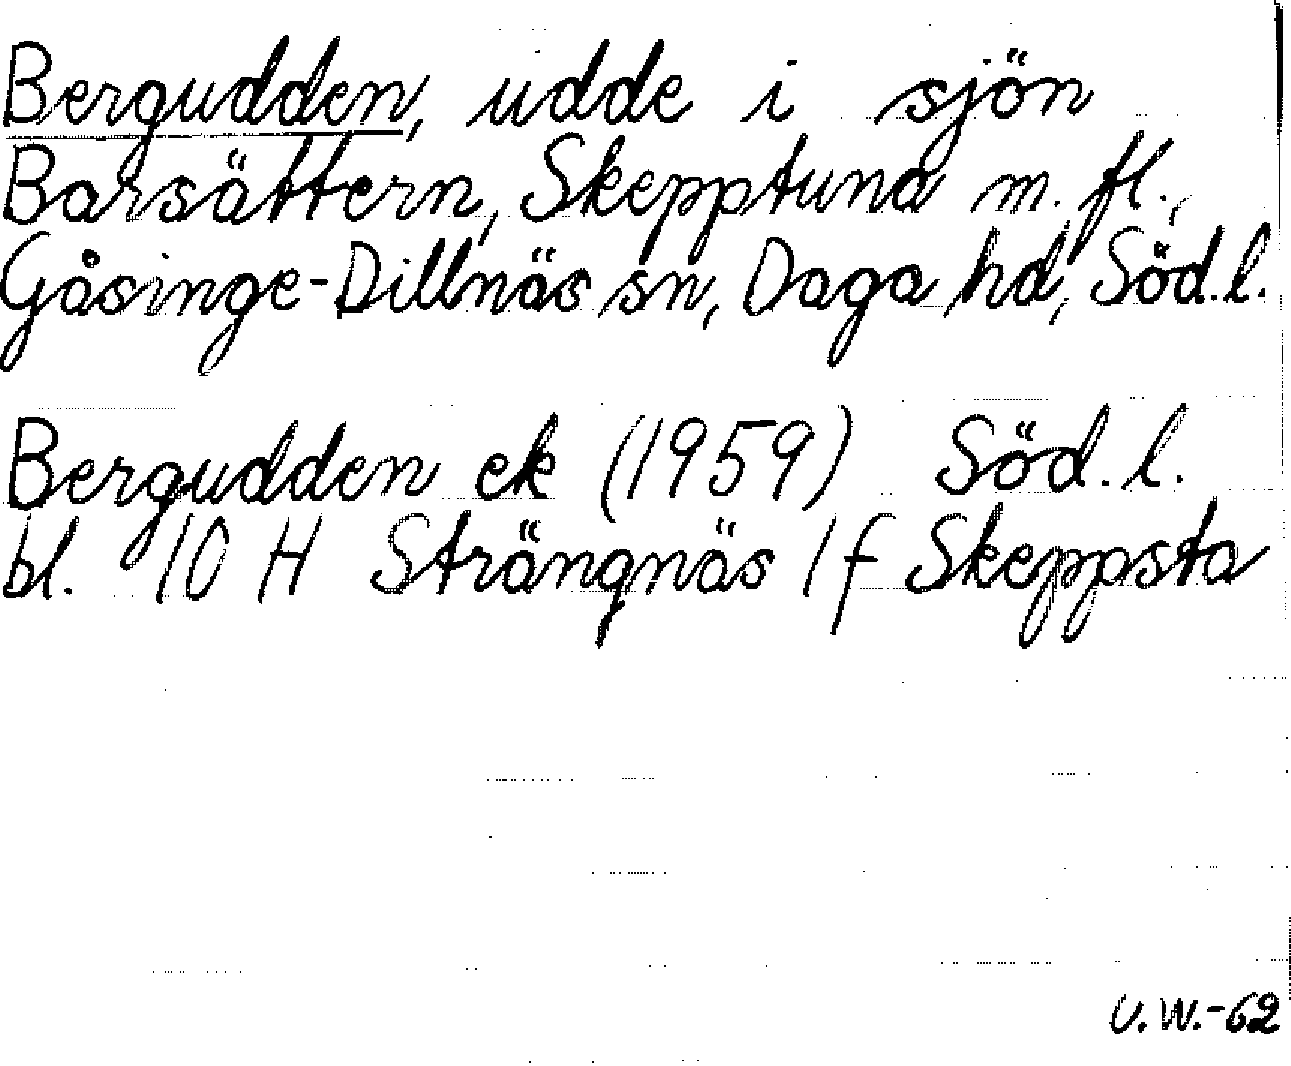 Bergudden, udde i sjön
Barsättern, Skepptuna m. fl.,
Gåsinge-Dillnäs sn, Daga hd, Söd.l.
Bergudden ek (1959) Söd.l.
bl. 10 H Strängnäs 1 f Skeppsta
U.W.-62